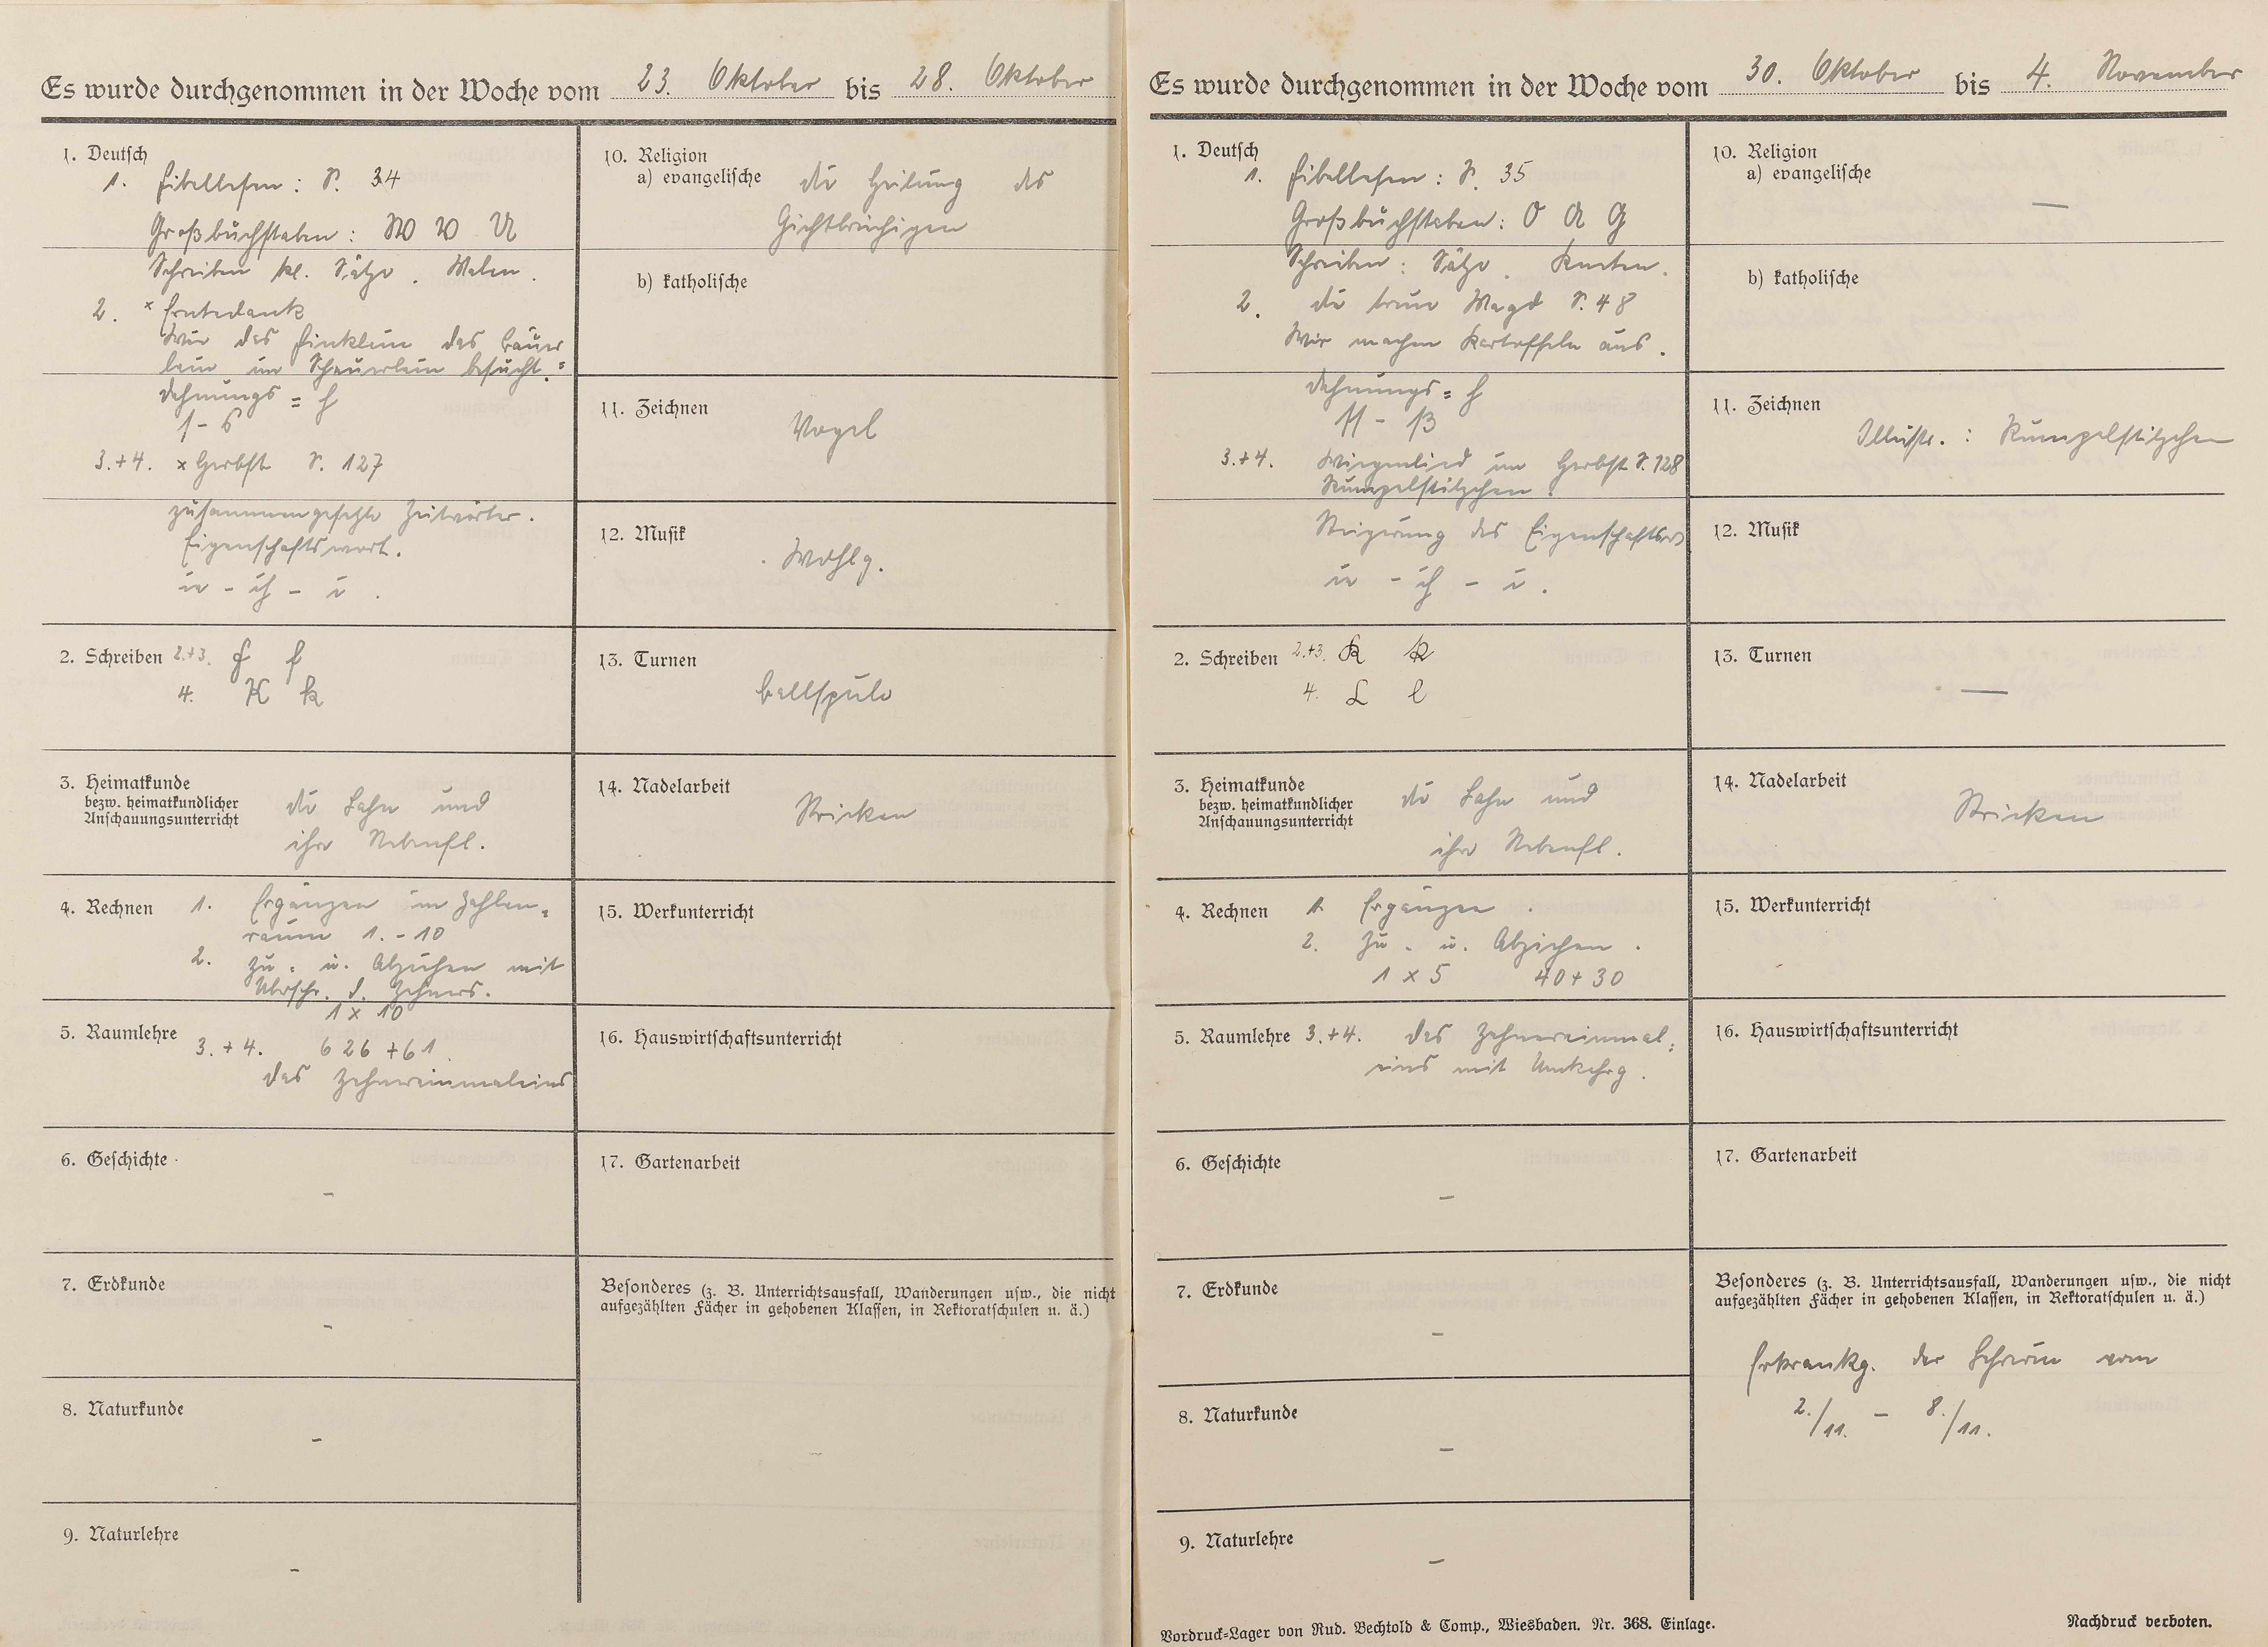 Es wurde durchgenommen in der Woche vom 23. Oktober bis 28. Oktober
1. Deutsch
1. Fibellesen: S. 34
Großbuchstaben: W V U
Schreiben kl. Sätze. Malen.
2. × Erntedank
Wie das Finklein das Bäuer
lein im Scheuerlein besucht.=
Dehnungs = h
s - ß
3.+4. × Herbst S. 127
zusammengesetzte Zeitwörter.
Eigenschaftswort.
ie - ih - i.
2. Schreiben 2.+3. F f
4. K k
3. Heimatkunde
bezw. heimatkundlicher
Anschauungsunterricht
die Lahn und
ihre Nebenfl.
4. Rechnen 1. Ergänzen im Zahlen=
raum 1.-10
2. Zu= u. Abziehen mit
Übrschr. d. Zehners.
1 x 10
5. Raumlehre 3.+4. 626+61
das Zehnereinmaleins
6. Geschichte -
7. Erdkunde -
8. Naturkunde -
9. Naturlehre -
10. Religion
a) evangelische die Heilung des
Gichtbrüchigen
b) katholische
11. Zeichnen
Vogel
12. Musik
Wdhlg.
13. Turnen
Ballspiele
14. Nadelarbeit
Stricken
15. Werkunterricht
16. Hauswirtschaftsunterricht
17. Gartenarbeit
Besonderes (z. B. Unterrichtsausfall, Wanderungen usw., die nicht
aufgezählten Fächer in gehobenen Klassen, in Rektoratschulen u. ä.)
Es wurde durchgenommen in der Woche vom 30. Oktober bis 4. November
1. Deutsch
1. Fibellesen: S. 35
Großbuchstaben: O A G
Schreiben: Sätze. Kneten.
2. die treue Magd S. 48
Wir machen Kartoffeln aus.
Dehnungs= h
ss - ß
3.+4. Wiegenlied im Herbst S. 128
Rumpelstilzchen.
Steigerung des Eigenschaftsw
ie - ih - i.
2. Schreiben 2.+3. K k
4. L l
3. Heimatkunde
bezw. heimatkundlicher
Anschauungsunterricht
die Lahn und
ihre Nebenfl.
4. Rechnen 1. Ergänzen.
2. Zu= u. Abziehen.
1 x 5 40+30
5. Raumlehre 3.+4. das Zehnereinmal=
eins mit Umkehrg.
6. Geschichte -
7. Erdkunde -
8. Naturkunde -
9. Naturlehre -
10. Religion
a) evangelische
—
b) katholische
11. Zeichnen
Illustr.: Rumpelstilzchen
12. Musik
13. Turnen
—
14. Nadelarbeit
Stricken
15. Werkunterricht
16. Hauswirtschaftsunterricht
17. Gartenarbeit
Besonderes (z. B. Unterrichtsausfall, Wanderungen usw., die nicht
aufgezählten Fächer in gehobenen Klassen, in Rektoratschulen u. ä.)
Erkrankg. der Lehrerin vom
2./11. - 8./11.
Vordruck-Lager von Rud. Bechtold & Comp., Wiesbaden. Nr. 368. Einlage. Nachdruck verboten.